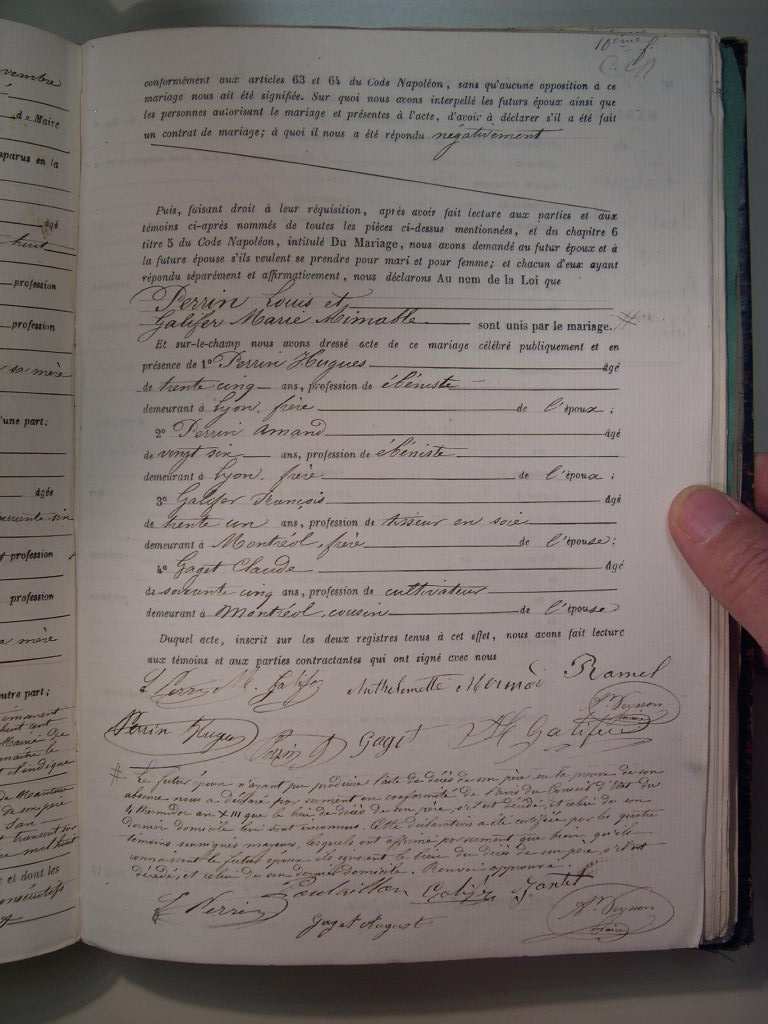 vembre
de Maire
mparus en la
âgé
profession
profession
sa mère
d'une part;
âgée
profession
profession
mère
autre part;
10ème f.
conformément aux articles 63 et 64 du Code Napoléon, sans qu'aucune opposition à ce
mariage nous ait été signifiée. Sur quoi nous avons interpellé les futurs époux ainsi que
les personnes autorisant le mariage et présentes à l'acte, d'avoir à déclarer s'il a été fait
un contrat de mariage; à quoi il nous a été répondu négativement
Puis, faisant droit à leur réquisition, après avoir fait lecture aux parties et aux
témoins ci-après nommés de toutes les pièces ci-dessus mentionnées, et du chapitre 6
titre 5 du Code Napoléon, intitulé Du Mariage, nous avons demandé au futur époux et à
la future épouse s'ils veulent se prendre pour mari et pour femme; et chacun d'eux ayant
répondu séparément et affirmativement, nous déclarons Au nom de la Loi que
Perrin Louis et
Galifer Marie Mimable sont unis par le mariage. #
Et sur-le-champ nous avons dressé acte de ce mariage célébré publiquement et en
présence de 1º Perrin Hugues âgé
de trente cinq ans, profession de ébéniste
demeurant à Lyon, frère de l'époux;
2º Perrin Amand âgé
de vingt six ans, profession de ébéniste
demeurant à Lyon, frère de l'époux;
3º Galifer François âgé
de trente un ans, profession de tisseur en soie
demeurant à Montréol, frère de l'épouse;
4º Gaget Claude âgé
de soixante cinq ans, profession de cultivateur
demeurant à Montréol, cousin de l'épouse
Duquel acte, inscrit sur les deux registres tenus à cet effet, nous avons fait lecture
aux témoins et aux parties contractantes qui ont signé avec nous
L Perrin M. Galifer Anthelemette Mermod Ramel
Perrin Hugues Perrin A Gaget Galifer Peysson
maire
# Le futur époux n'ayant pu produire l'acte de décès de son père en la preuve de son
absence nous a déclaré par serment en conformité de l'avis du Conseil d'Etat du
4 thermidor an XIII que le lieu du décès de son père, s'il est décédé, et celui de son
dernier domicile lui sont inconnus. Cette déclaration a été certifiée par les quatre
témoins susnommés majeurs, lesquels ont affirmé par serment que bien qu'ils
connaissent le futur époux ils ignorent le lieu du décès de son père, s'il est
décédé, et celui de son dernier domicile. Renvoi approuvé.
L Perrin Galifer
Gaget August Peysson
maire